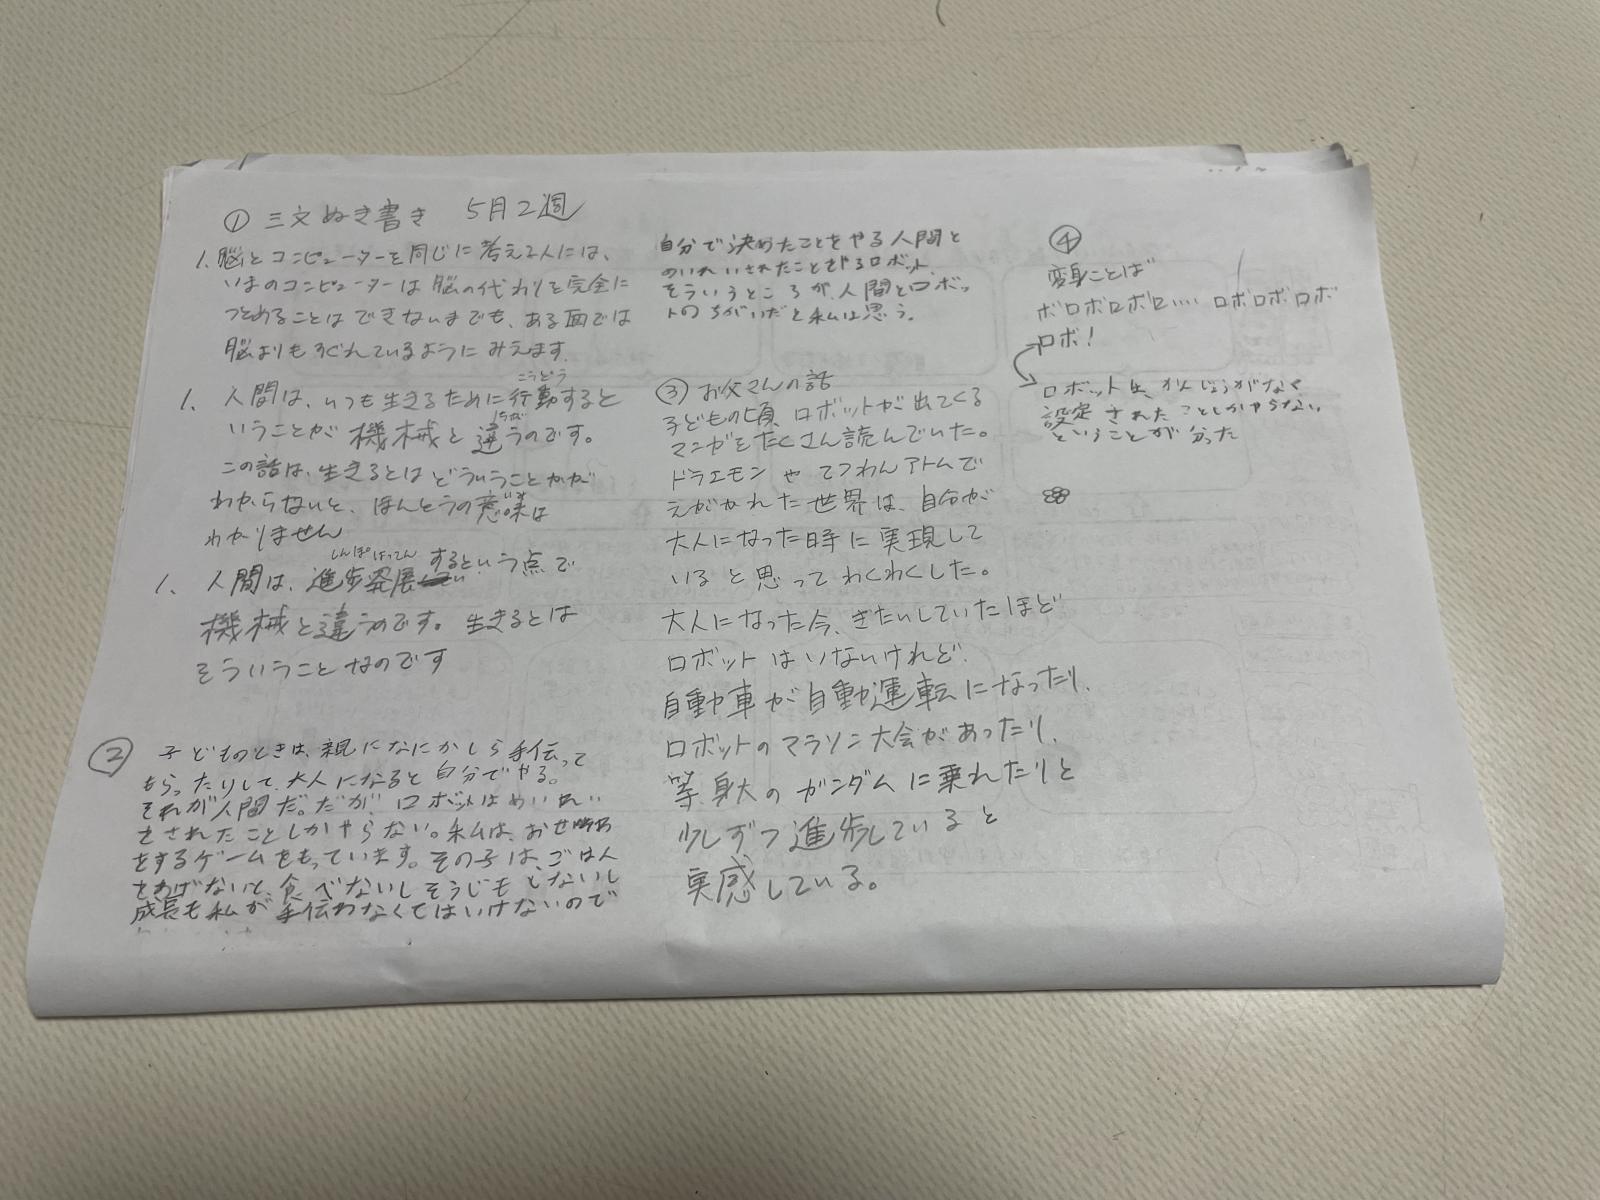 ① 三文ぬき書き 5月2週
1. 脳とコンピューターを同じに考える人には、
いまのコンピューターは脳の代わりを完全に
つとめることはできないまでも、ある面では
脳よりもすぐれているようにみえます。
こうどう
1. 人間は、いつも生きるために行動すると
ちが
いうことが機械と違うのです。
この話は、生きるとはどういうことかが
わからないと、ほんとうの意味は
わかりません
しんぽはってん
1. 人間は、進歩発展するという点で
機械と違うのです。生きるとは
そういうことなのです
② 子どものときは、親になにかしら手伝って
もらったりして、大人になると自分でやる。
それが人間だ。だが、ロボットはめいれい
をされたことしかやらない。私は、おせ
をするゲームをもっています。その子は、ごはん
をあげないと、食べないしそうじもしないし
成長も私が手伝わなくてはいけないので
自分で決めたことをやる人間と
めいれいされたことをやるロボット、
そういうところが、人間とロボッ
トのちがいだと私は思う。
③ お父さんの話
子どもの頃ロボットが出てくる
マンガをたくさん読んでいた。
ドラエモンやてつわんアトムで
えがかれた世界は、自分が
大人になった時に実現して
いると思ってわくわくした。
大人になった今、きたいしていたほど
ロボットはいないけれど、
自動車が自動運転になったり、
ロボットのマラソン大会があったり、
等身大のガンダムに乗れたりと
少しずつ進歩していると
実感している。
④
変身ことば
ボロボロボロ‥‥ロボロボロボ
ロボ!
ロボットは、かんじょうがなく
設定されたことしかやらない
ということが分った